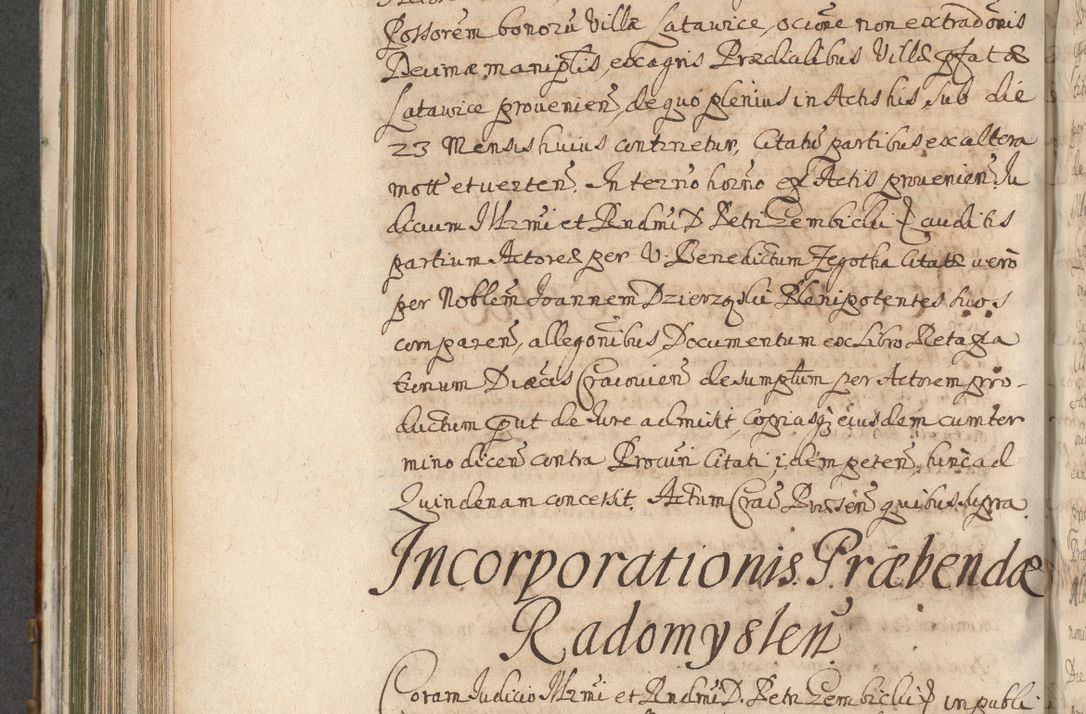 Possorem bonorū Villæ Latawice, ocione non extradonis
Decimæ maniplis, ex agris Prædialibus Villæ pfatæ
Latawice provenien, de quo plenius in Actis his sub die
23 Mensis huius continetur, Citatū partibus ex altera
mott et verten. In termo horno ex Actis provenien. Iu
dicium Illrmi et Rndmi D. Petri Gembicki auditis
partium Actoreæ per V. Benedictum Zegotha Citatæ vero
per Noblem Joannem Dzierzgski Plenipotentes suos
comparen, allegonibus, Documentum ex Libro Retaxa
tionum Diæcis Cracovien desumptum per Actorem pro-
ductum put de Iure admisit, copiasq eiusdem cum ter
mino dicen contra Procuri Citati idem peten, hinc ad
Quindenam concessit. Actum Crac Præsen quibus supra.
Incorporationis Præbendæ
Radomyslen
Coram Iudicio Illrmi et Rndmi D. Petri Gembicki in publi